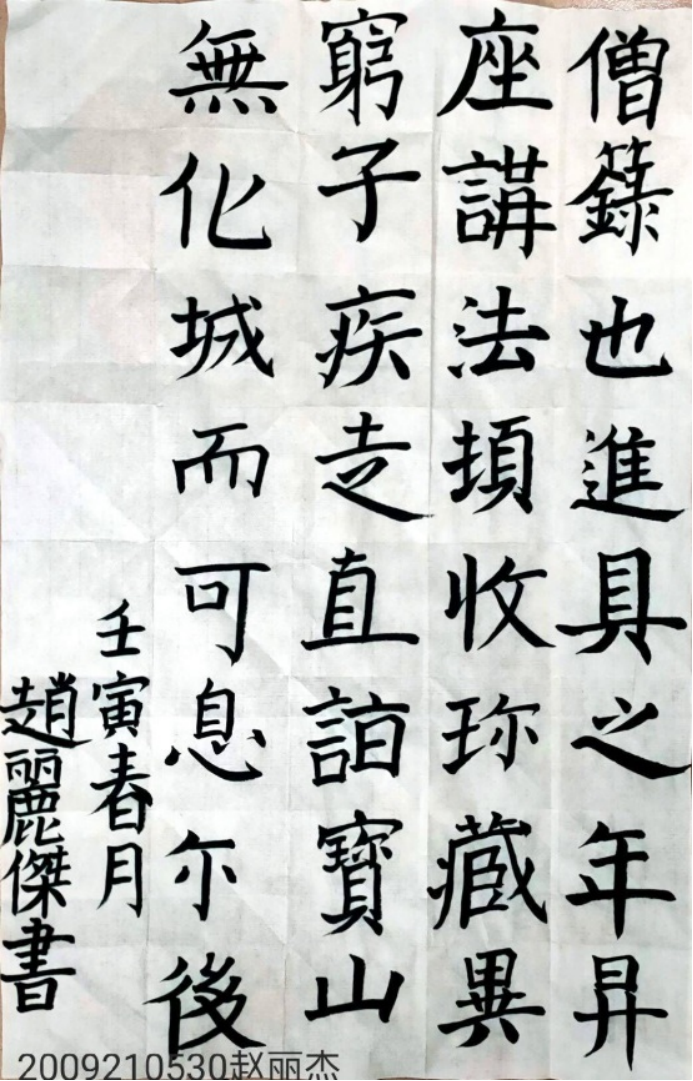 僧籙也進具之年昇
座講法頓收珎藏異
窮子疾走直詣寶山
無化城而可息尒後
壬寅春月
趙麗傑書
2009210530赵丽杰